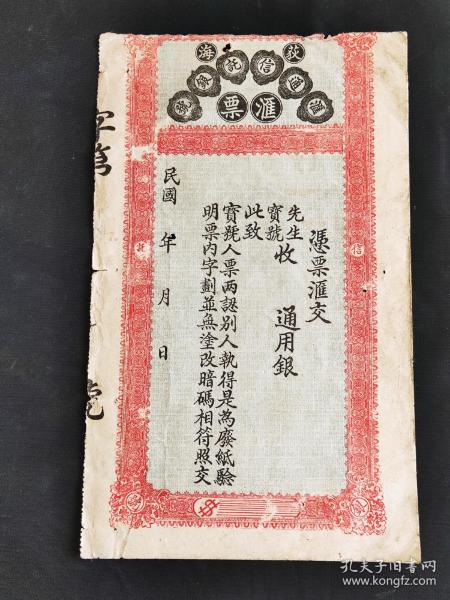 荻海
通信託
滙票
憑票滙交
通用銀
先生
寶號
收
此致
寶號人票兩認別人執得是為廢紙驗
明票内字劃並無塗改暗碼相符照交
民國 年 月 日
字第 號
信
$
孔夫子旧书网
www.kongfz.com